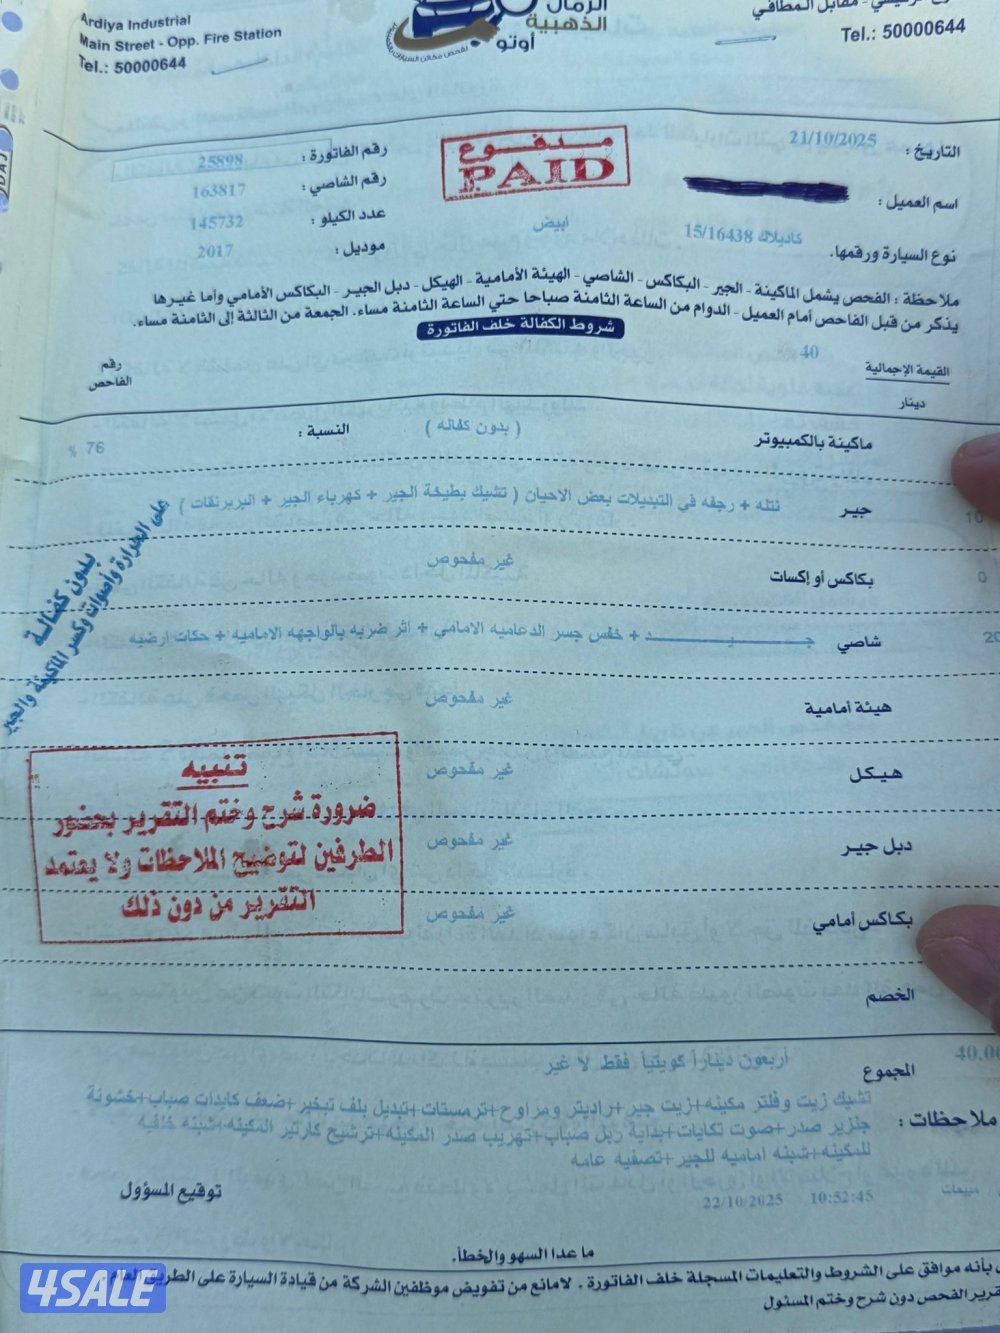 Ardiya Industrial
Main Street - Opp. Fire Station
Tel.: 50000644
الرمال
الذهبية
أوتو
لفحص مكائن السيارات بالكمبيوتر
مقابل المطافي
Tel.: 50000644
التاريخ : 21/10/2025
مدفوع
PAID
رقم الفاتورة : 25898
اسم العميل :
رقم الشاصي : 163817
نوع السيارة ورقمها. كاديلاك 15/16438 ابيض
عدد الكيلو : 145732
موديل : 2017
ملاحظة : الفحص يشمل الماكينة - الجير - البكاكس - الشاصي - الهيئة الأمامية - الهيكل - دبل الجير - البكاكس الأمامي وأما غيرها
يذكر من قبل الفاحص أمام العميل - الدوام من الساعة الثامنة صباحا حتي الساعة الثامنة مساء. الجمعة من الثالثة إلى الثامنة مساء.
شروط الكفالة خلف الفاتورة
القيمة الإجمالية 40
دينار
رقم
الفاحص
ماكينة بالكمبيوتر ( بدون كفاله ) النسبة : 76 %
جير نتله + رجفه في التبديلات بعض الاحيان ( تشيك بطيخة الجير + كهرباء الجير + البريرنقات )
10
بكاكس أو إكسات غير مفحوص
0
شاصي جـــيـــد + خفس جسر الدعاميه الامامي + أثر ضربه بالواجهه الاماميه + حكات ارضيه
20
هيئة أمامية غير مفحوص
هيكل غير مفحوص
دبل جير غير مفحوص
بكاكس أمامي غير مفحوص
الخصم
بدون كفالة
على الحرارة وأصوات وكسر الماكينة والجير
تنبيه
ضرورة شرح وختم التقرير بحضور
الطرفين لتوضيح الملاحظات ولا يعتمد
التقرير من دون ذلك
المجموع أربعون ديناراً كويتياً فقط لا غير 40.00
ملاحظات : تشيك زيت وفلتر مكينه+زيت جير+راديتر ومراوح+ترمستات+تبديل بلف تبخير+ضعف كايدات صباب+خشونة
جنزير صدر+صوت تكايات+بداية ربل صباب+تهريب صدر المكينه+ترشيح كارتير المكينه+شبنه خلفيه
للمكينه+شبنه اماميه للجير+تصفيه عامه
22/10/2025 10:52:45
مبيعات
توقيع المسؤول
ما عدا السهو والخطأ.
بأنه موافق على الشروط والتعليمات المسجلة خلف الفاتورة . لامانع من تفويض موظفين الشركة من قيادة السيارة على الطريق العام.
الفحص دون شرح وختم المسئول
4SALE